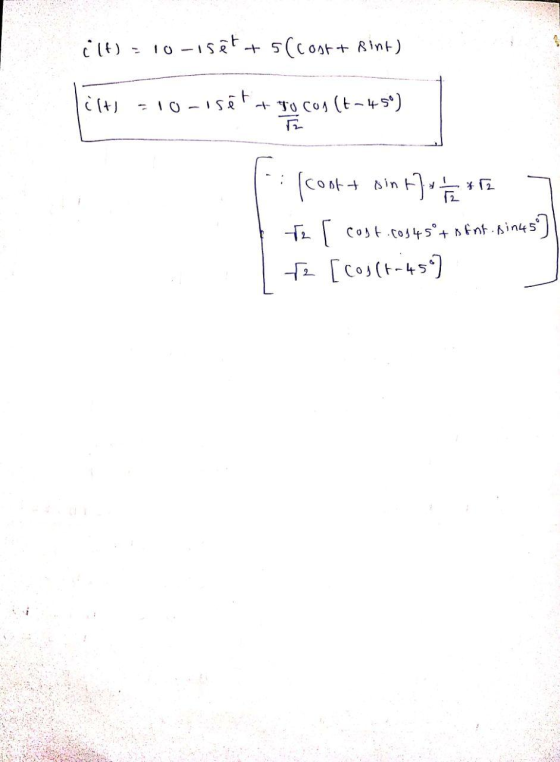 i(t) = 10 - 15e^-t + 5(cost + sint)
i(t) = 10 - 15e^-t + 10/√2 cos(t-45°)
∵ [cost + sint] * 1/√2 * √2
√2 [cost.cos45° + sint.sin45°]
√2 [cos(t-45°]